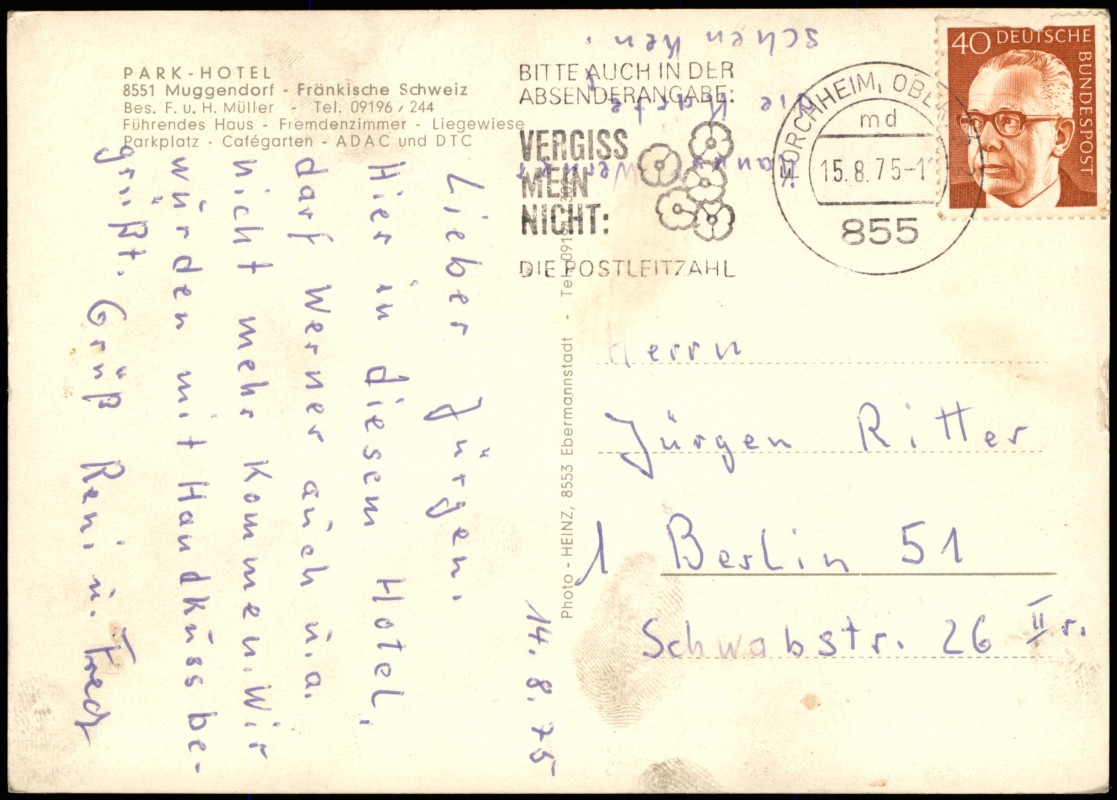 PARK-HOTEL
8551 Muggendorf - Fränkische Schweiz
Bes. F. u. H. Müller - Tel. 09196/244
Führendes Haus - Fremdenzimmer - Liegewiese
Parkplatz - Cafégarten - ADAC und DTC
14.8.75
Lieber Jürgen.
Hier in diesem Hotel,
darf Werner auch u.a.
nicht mehr kommen. Wir
würden mit Handkuss be-
grüßt. Gruß Reni u. Fred
Werner
die Karte
schenken.
Photo - HEINZ, 8553 Ebermannstadt - Tel.
BITTE AUCH IN DER
ABSENDERANGABE:
VERGISS
MEIN
NICHT:
DIE POSTLEITZAHL
FORCHHEIM,
md
15.8.75-1
855
40 DEUTSCHE
BUNDESPOST
Herrn
Jürgen Ritter
1 Berlin 51
Schwabstr. 26 II r.